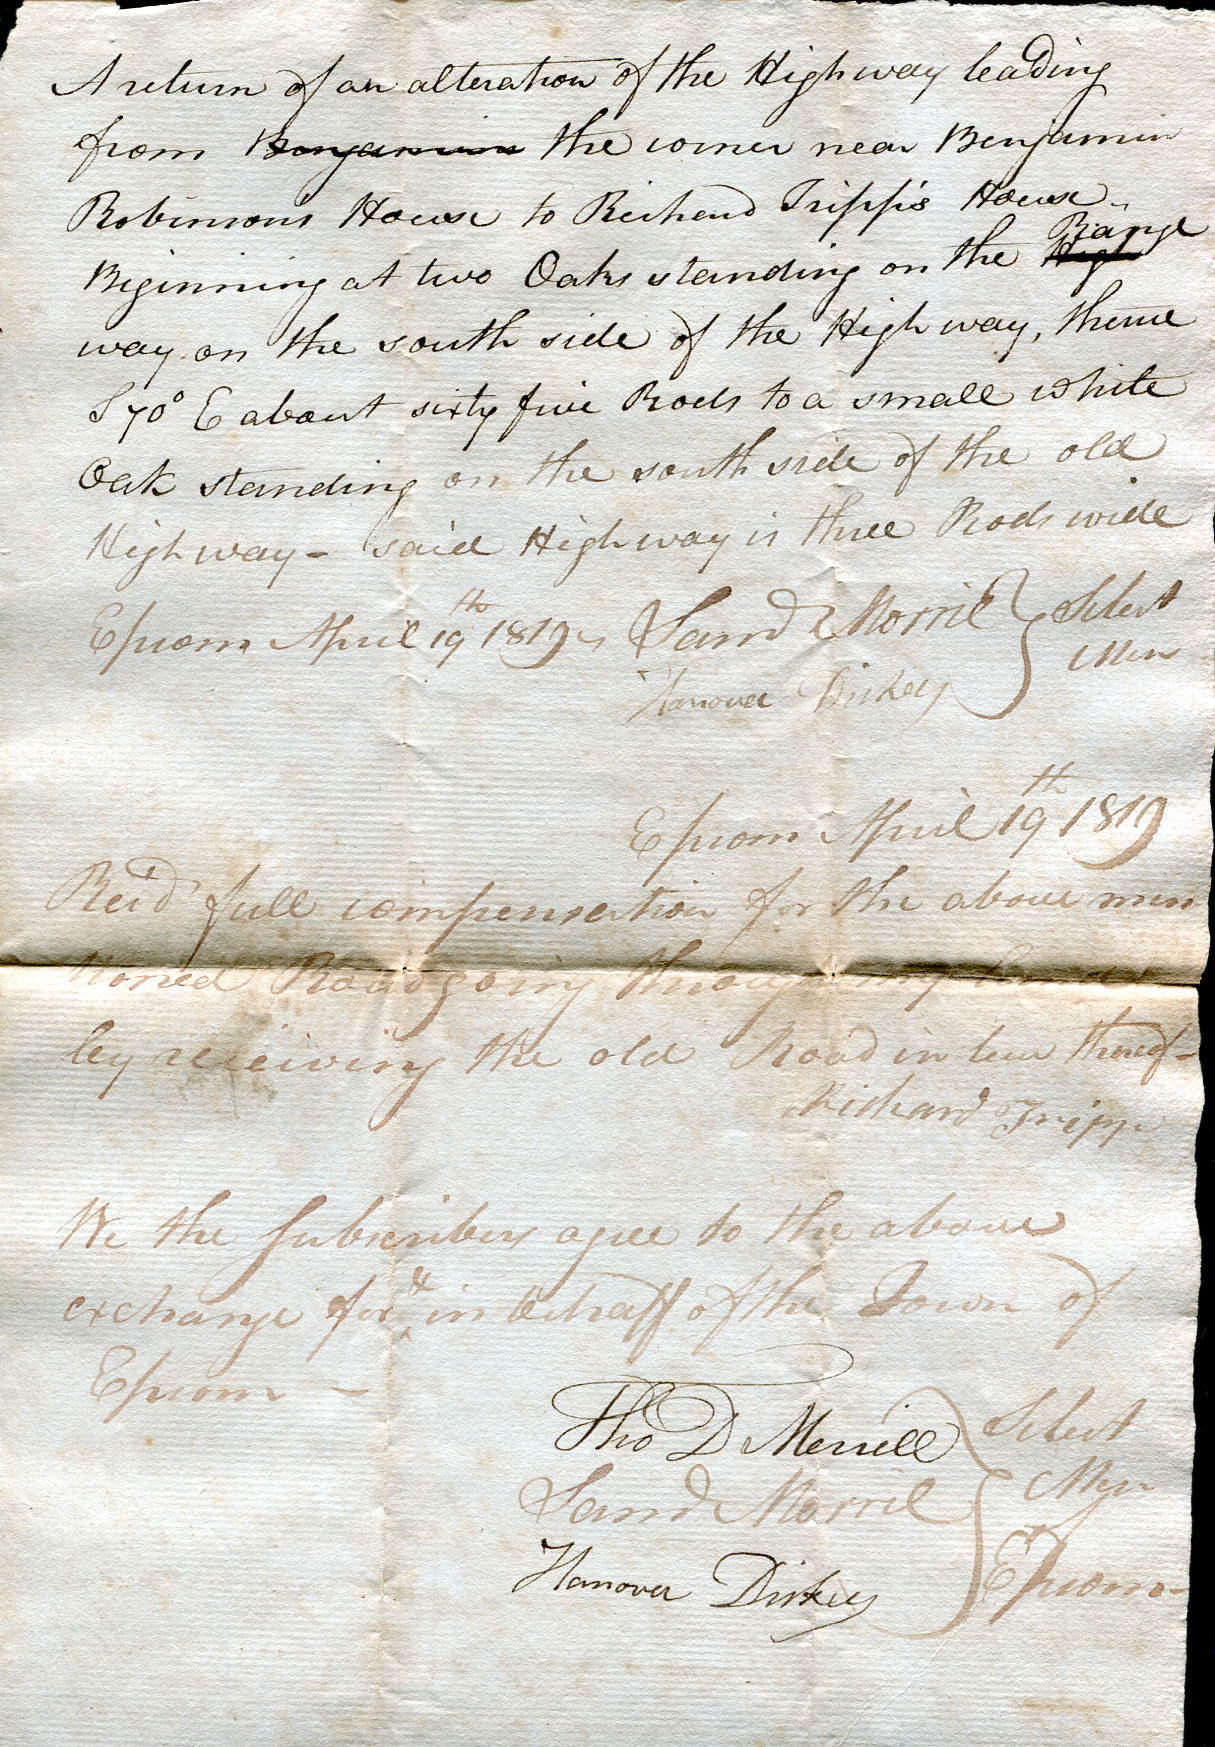 A return of an alteration of the Highway leading
from Benjamin the corner near Benjamin
Robinson's House to Richard Tripp's House
Range
Biginning at two Oaks standing on the High
way on the south side of the High way, thence
S 70° E about sixty five Rods to a small white
Oak standing on the south side of the old
High way - said High way is three Rods wide
Epsom April 19th 1819 Saml Morril Select
Hanover Dickey Men
Epsom April 19th 1819
Rec'd full compensation for the above men
tioned Road going through my
by receiving the old Road in lieu thereof -
Richard Tripp
We the subscribers agree to the above
exchange for & in behalf of the Town of
Epsom -
Tho D Merrill Select
Saml Morril Men
Hanover Dickey Epsom